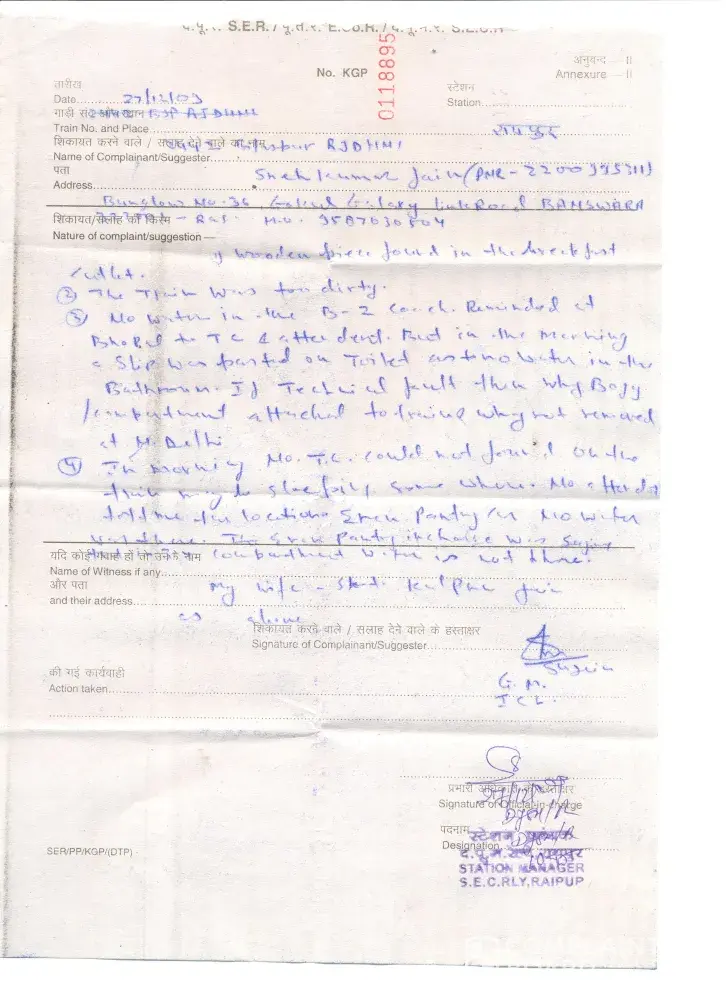 द.पू.रे. S.E.R. / पू.त.रे. E.Co.R. / द.पू.म.रे. S.E.C.R
अनुबन्द — II
No. KGP 0118895
Annexure — II
तारीख
स्टेशन
Date 27/12/09
Station
गाड़ी सं. और स्थान BSP RJDHNI
Train No. and Place रायपुर
शिकायत करने वाले / सलाह देने वाले का नाम Bilaspur RJDHNI
Name of Complainant/Suggester
पता Sneh Kumar Jain (PNR - 2200995311)
Address
Bunglow No. 36, Gokul Galaxy Link Road BANSWARA
शिकायत/सलाह की किस्म - Raj. M.o. 9587030504
Nature of complaint/suggestion —
1) wooden piece found in the breakfast
cutlet.
② The Train was too dirty.
③ No water in the B-2 coach. Reminded at
Bhopal to TC & attendent. But in the morning
a slip was pasted on Toilet as no water in the
Bathroom. If Technical fault then why Bogy
/compartment attached to train & why not removed
at N. Delhi
④ In morning No. T.C. could not found on the
train may be sleeping some where. No attendt
told me the location. Even Pantry
Even Pantry incharge was
compartment water is not there.
यदि कोई गवाह हों तो उनके नाम
Name of Witness if any
और पता My wife - Smt. Kalpna Jain
and their address
as above
शिकायत करने वाले / सलाह देने वाले के हस्ताक्षर
Signature of Complainant/Suggester
SKJain
की गई कार्यवाही G. M.
Action taken I C L.
प्रभारी अधिकारी के हस्ताक्षर
Signature of Official-in-charge
पदनाम
Designation
SER/PP/KGP/(DTP)
STATION MANAGER
S.E.C.RLY,RAIPUR